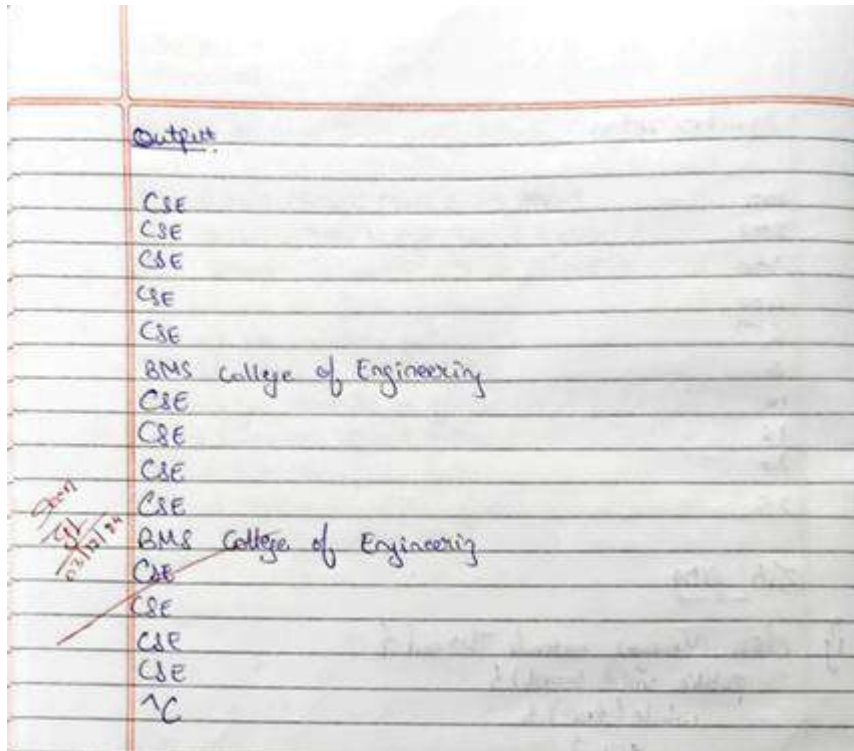 Output
CSE
CSE
CSE
CSE
CSE
BMS College of Engineering
CSE
CSE
CSE
CSE
BMS College of Engineerig
CSE
CSE
CSE
CSE
^C